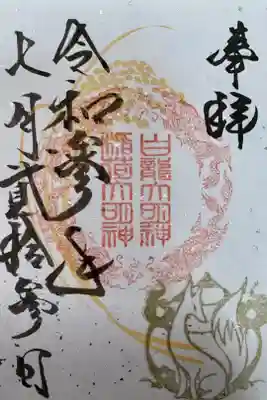 奉拝
白龍大明神
頭大明神
令和参年
七月貳拾参日